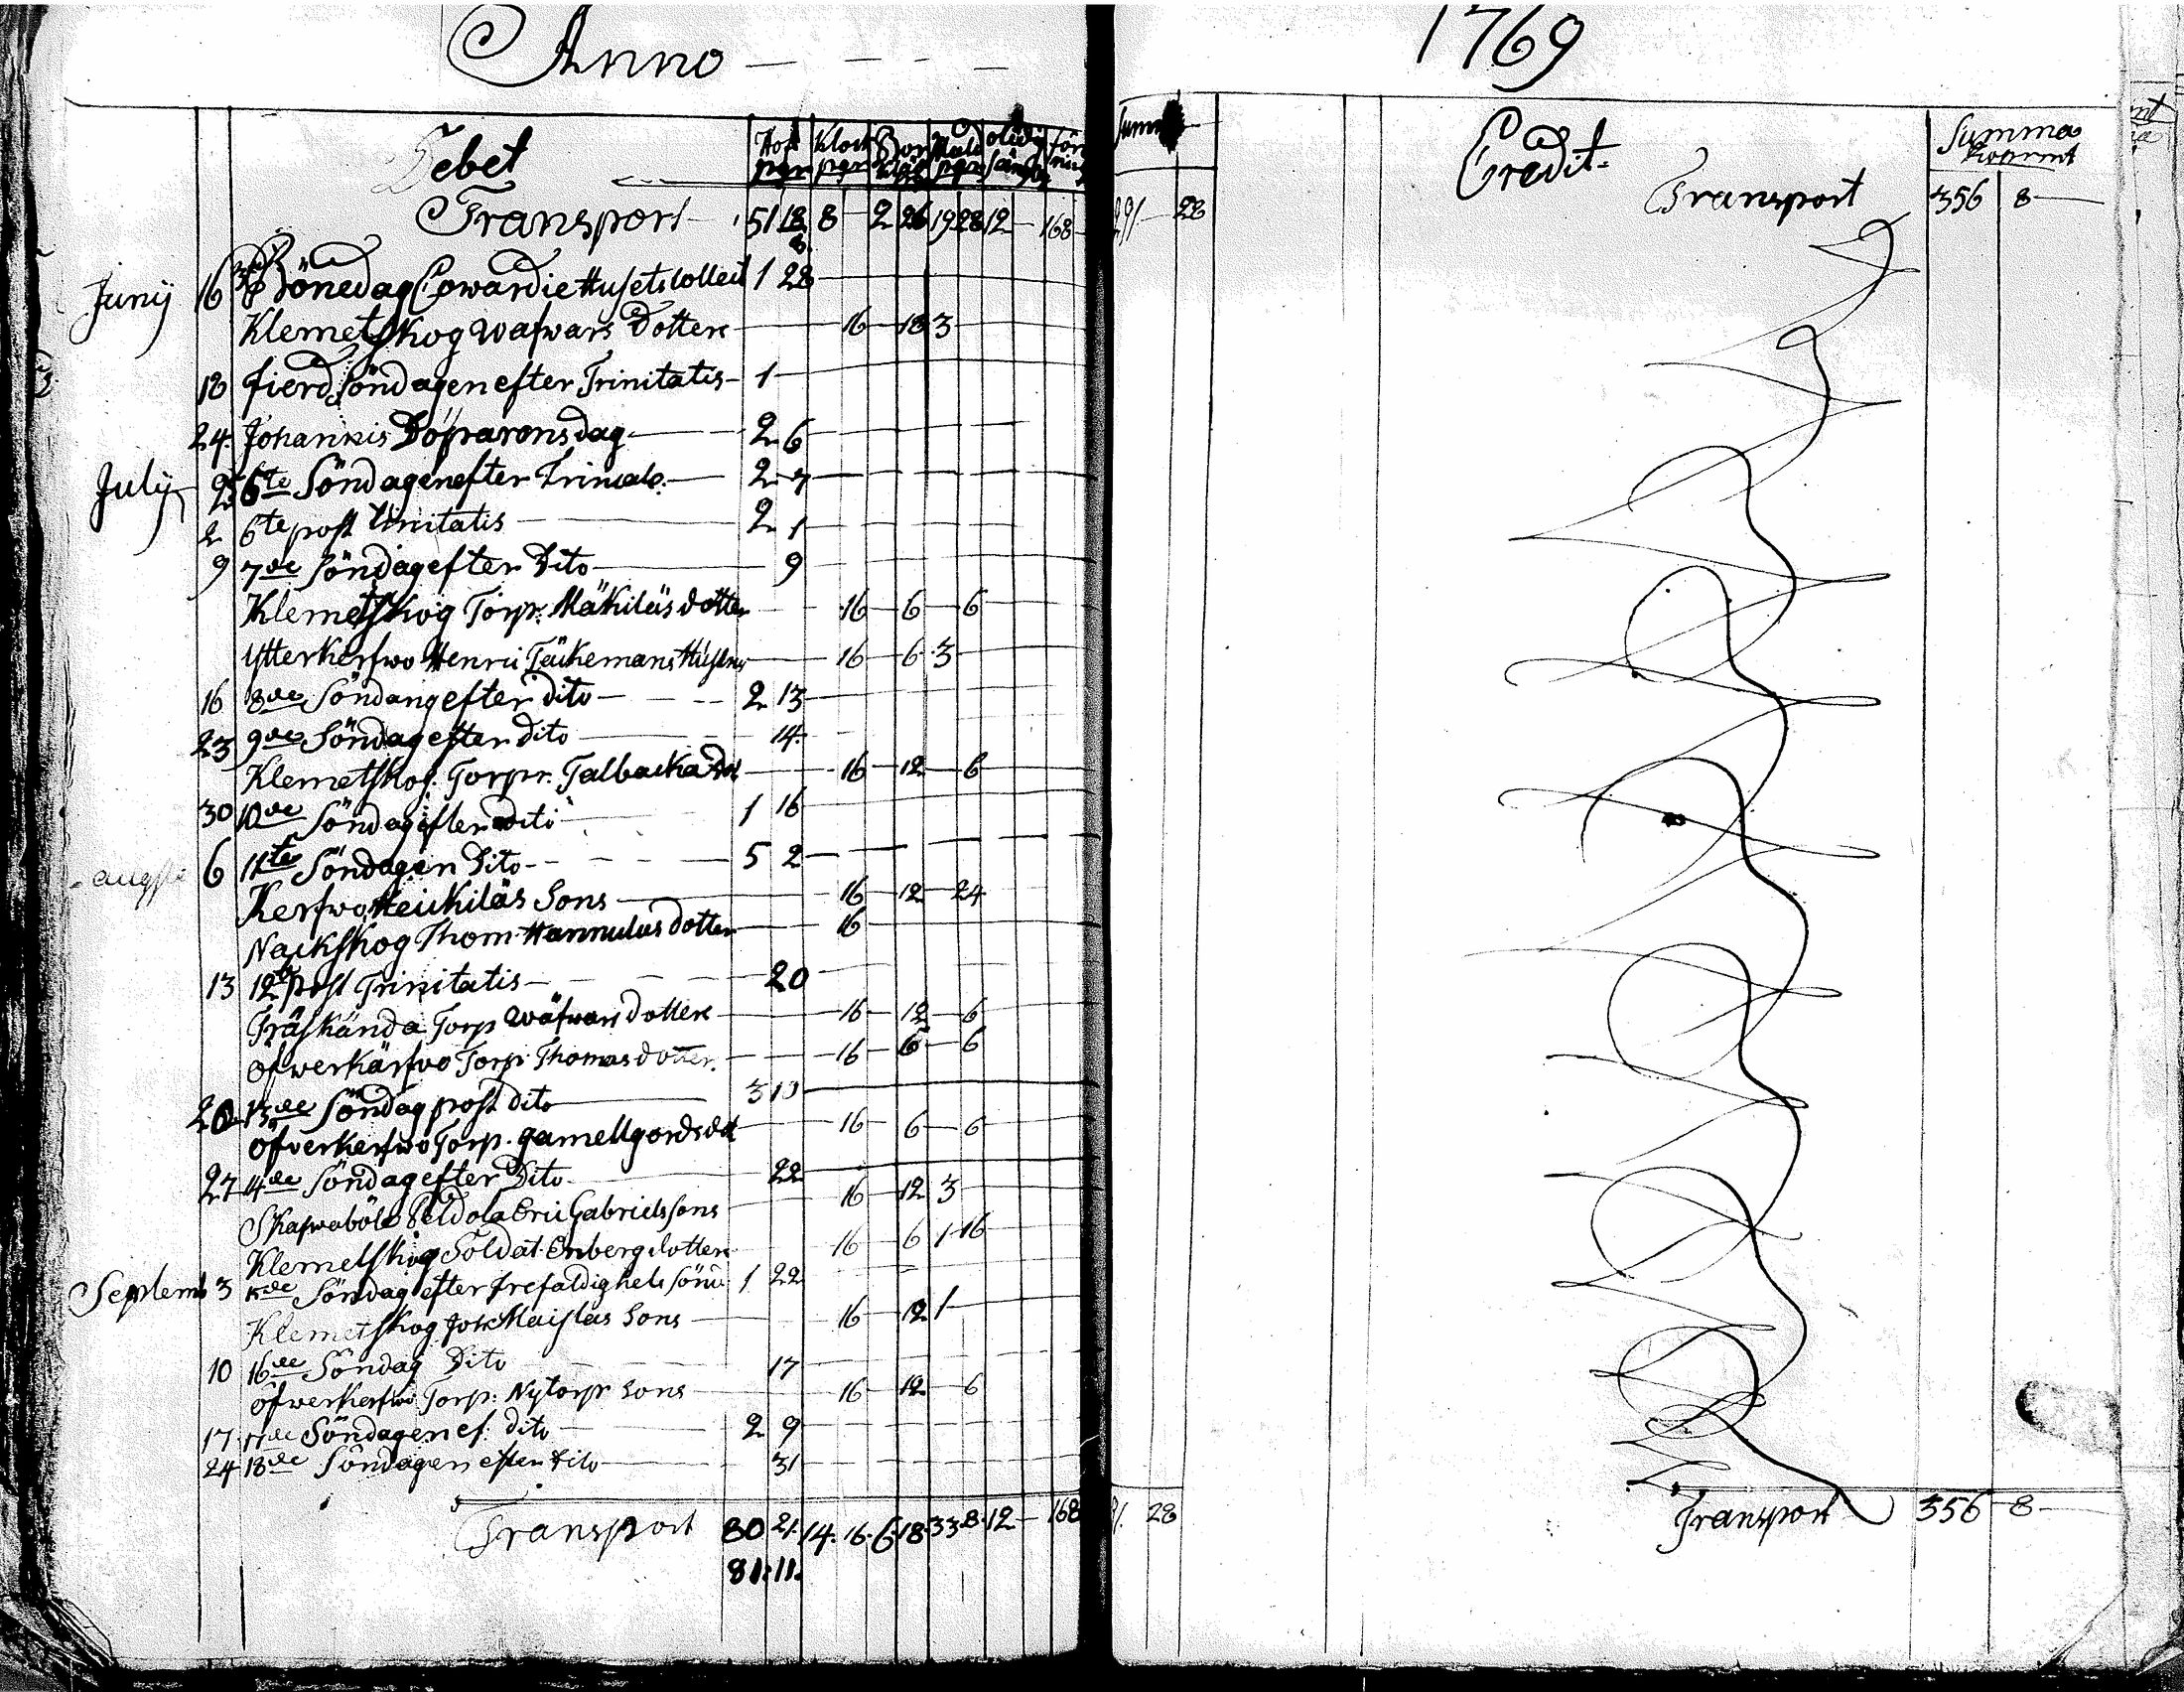 Anno — — — —
Debet
Transport 51 18 8 — 2 26 19 28 12 — 168
8
Junij 16 3die Bönedag Cowardie Husets Collect 1 28
Klemetskog Wäfwars Dotter 16 18 3
18 fierd Söndagen efter Trinitatis 1
24. Johannis Döparens dag 2 6
July 6te Söndagen efter 2 7
2 6te post Trinitatis 2 1
9 7de Söndag efter Dito 9
Klemetskog Torp: Mäkiläs dotter 16 6 6
Ytterkerfwo Henric 16 6 3
16 8de Söndang efter dito 2 13
23 9de Söndag efter dito 14
Klemetskog. Torpr. Talbacka Dot 16 12 6
30 10de Söndag efter dito 1 16
augsti 6 11te Söndagen Dito 5 2
Kerfwo Heikiläs Sons 16 12 24
Nackskog Thom Hannulas dotter 16
13 12te post Trinitatis 20
Träskända Torp Wäfwars dotter 16 12 6
Ofwerkärfwo Torp Thomas dotter 16 6 6
20 13de Söndag post dito 3 10
Ofverkerfwo Torp. gamellgords dot 16 6 6
27 14de Söndag efter Dito 22
Skafwaböle Peldola Eric Gabrielssons 16 12 3
Klemetskog Soldat Enberg dotter 16 6 1 16
Septemb 3 15de Söndag efter trefaldighets sönd 1 22
Klemetskog Maislas Sons 16 12 1
10 16de Söndag Dito 17
Ofwerkerfwo Torp: Nytorp Sons 16 12 6
17 17de Söndagen ef: dito 2 9
24 18de Söndagen efter dito 31
Transport 80 21. 14. 16. 6. 18. 33 8. 12 — 168
81: 11.
1769
Summa
291 28
Credit.
Summa
Transport 356 8
91. 28
Transport 356 8